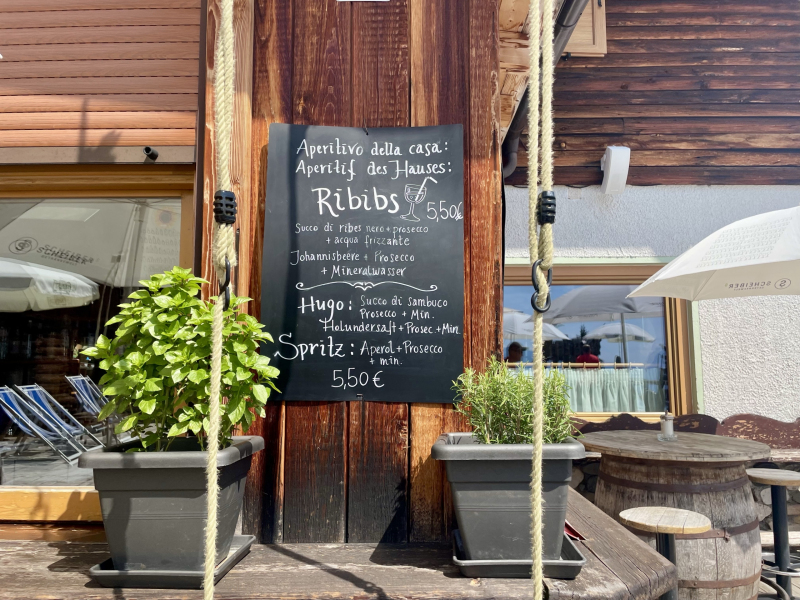 Aperitivo della casa:
Aperitif des Hauses:
Ribibs 5,50€
Succo di ribes nero + prosecco
+ acqua frizzante
Johannisbeere + Prosecco
+ Mineralwasser
Hugo: Succo di sambuco
Prosecco + Min.
Holundersaft + Prosec. + Min.
Spritz: Aperol + Prosecco
+ min.
5,50 €
SCHEIBER